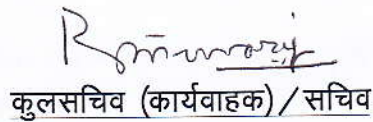 कुलसचिव (कार्यवाहक) / सचिव